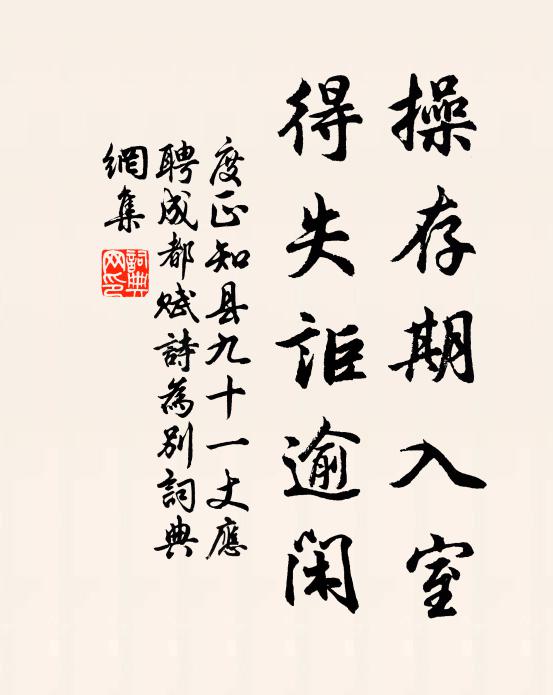 操存期入室
得失詎逾闲
度正知县九十一丈應
聘成都赋詩為别詞典
網集
詞典網印